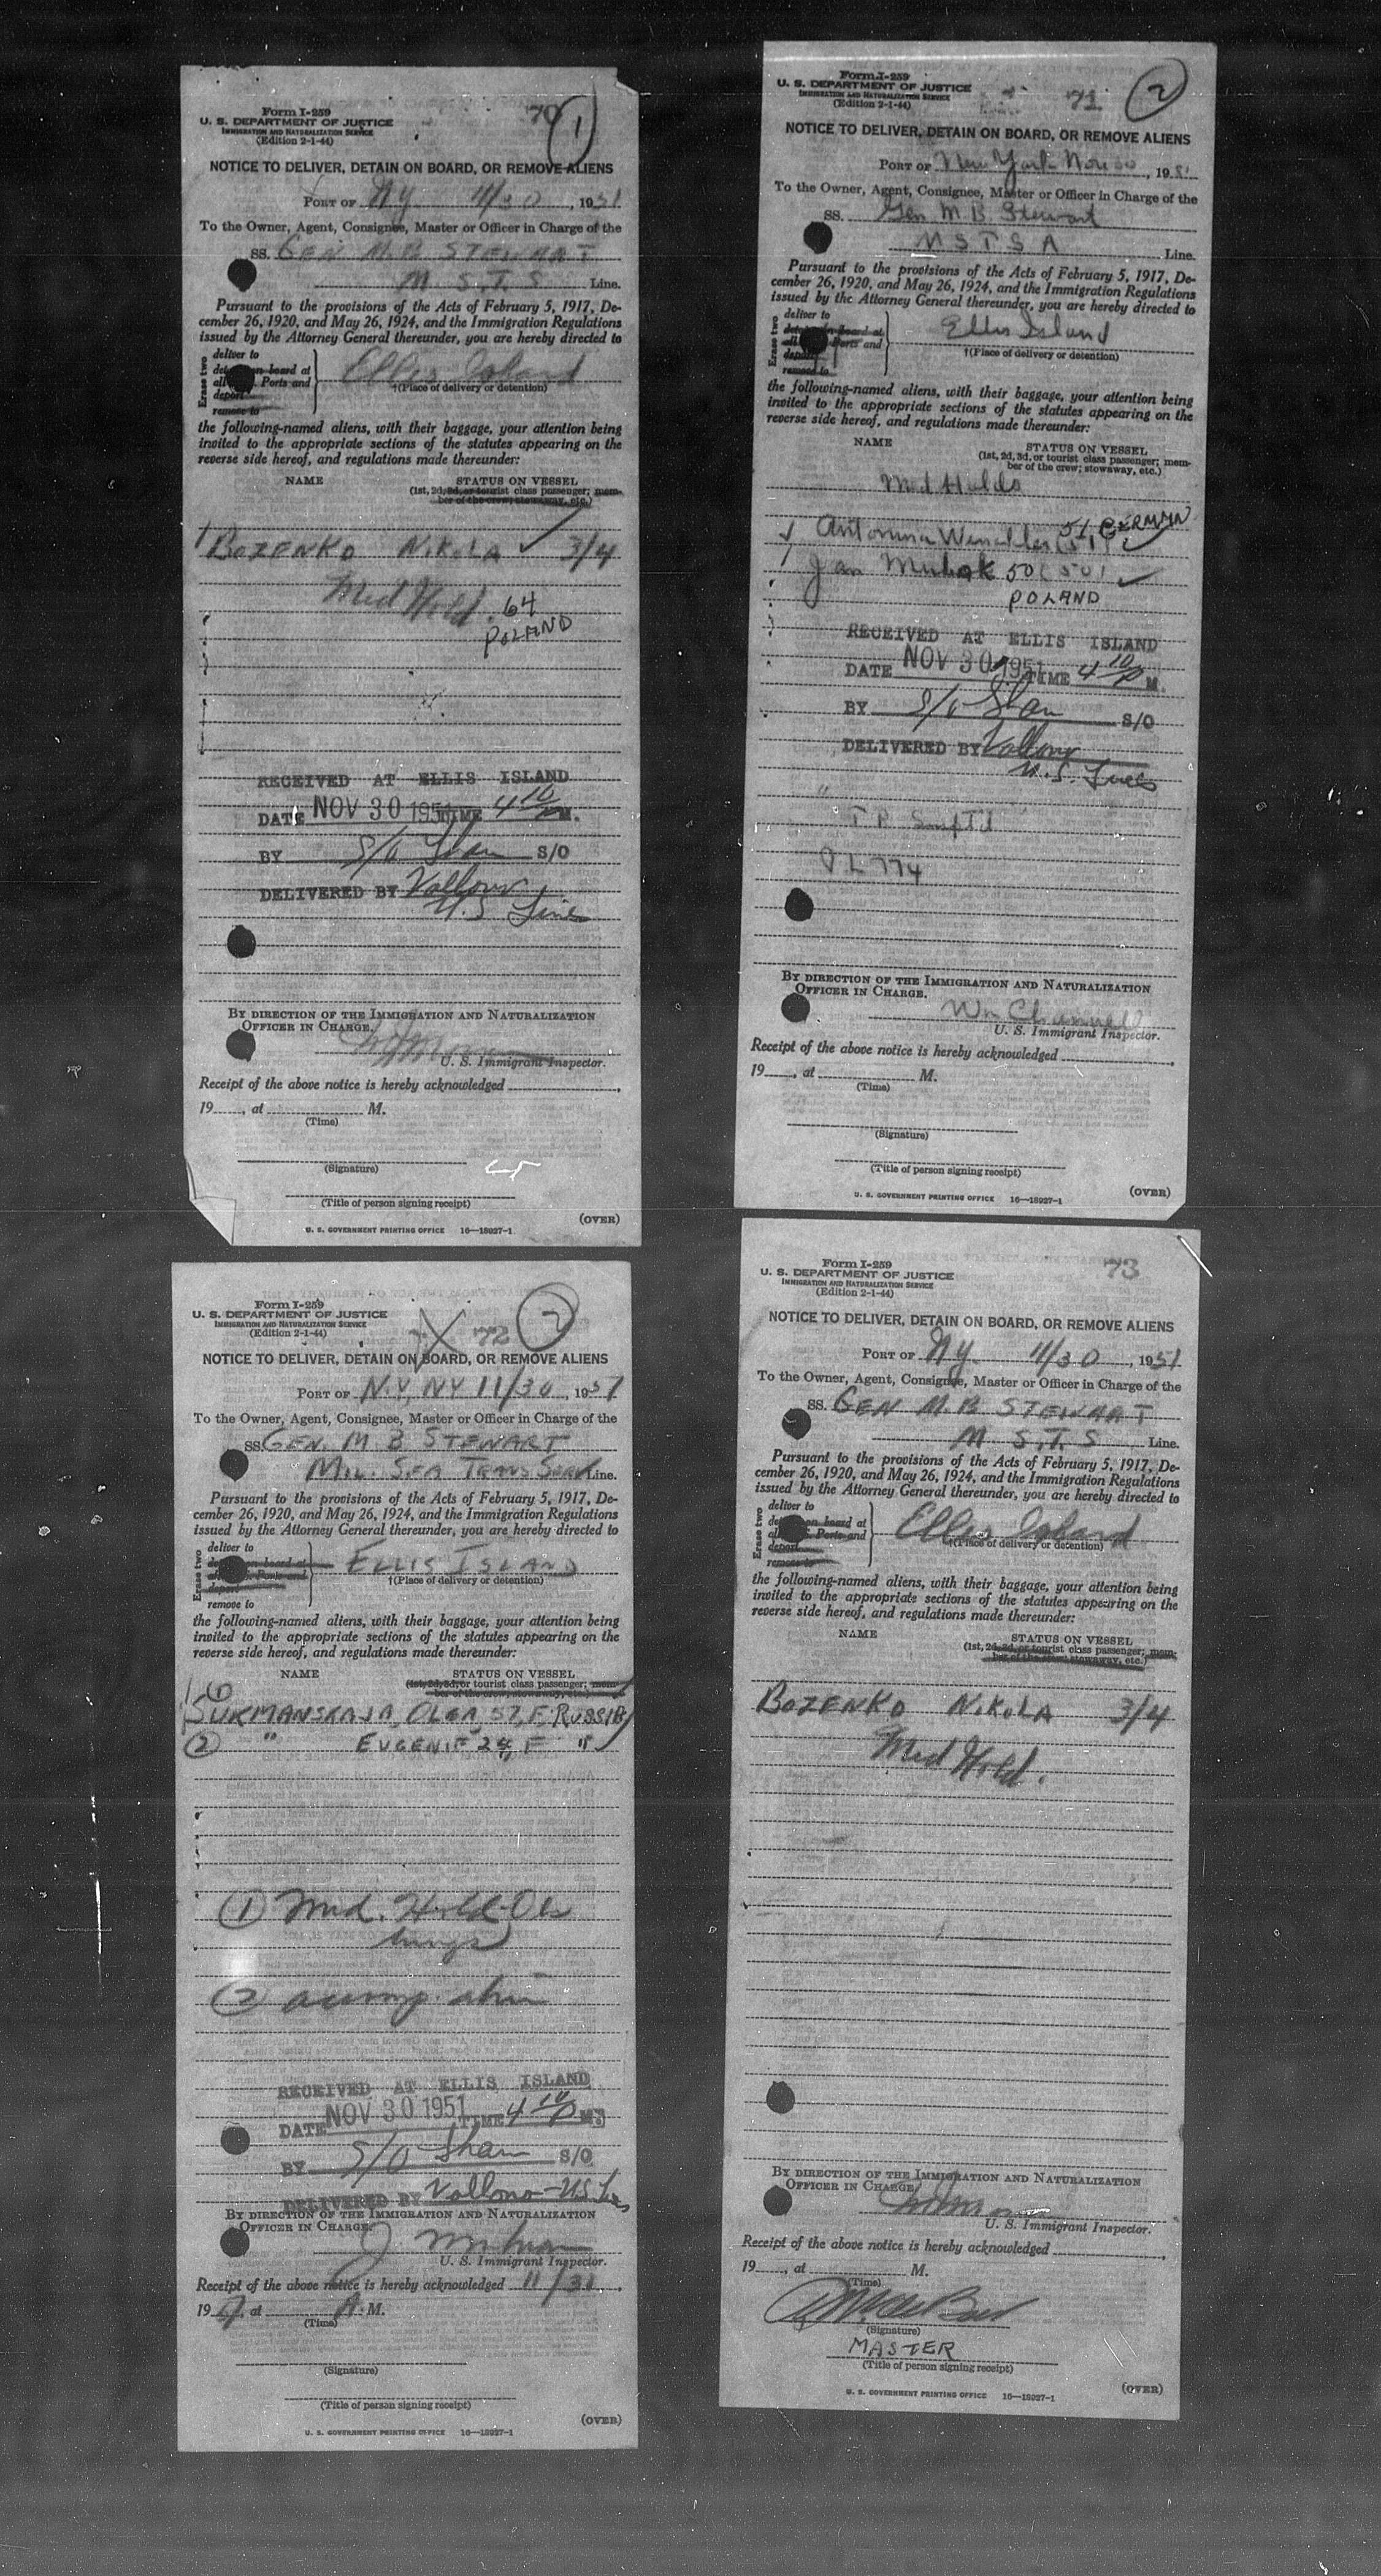 Form I-259
U. S. DEPARTMENT OF JUSTICE
IMMIGRATION AND NATURALIZATION SERVICE
(Edition 2-1-44)
70
1
NOTICE TO DELIVER, DETAIN ON BOARD, OR REMOVE ALIENS
PORT OF NY 11/30, 1951
To the Owner, Agent, Consignee, Master or Officer in Charge of the
SS. GEN M.B STEWART
M.S.T.S Line.
Pursuant to the provisions of the Acts of February 5, 1917, De-
cember 26, 1920, and May 26, 1924, and the Immigration Regulations
issued by the Attorney General thereunder, you are hereby directed to
Erase two
deliver to
on board at
Ports and
deport
remove to
Ellis Island
†(Place of delivery or detention)
the following-named aliens, with their baggage, your attention being
invited to the appropriate sections of the statutes appearing on the
reverse side hereof, and regulations made thereunder:
NAME STATUS ON VESSEL
(1st, 2d, 3d, or tourist class passenger; mem-
ber of the crew; stowaway, etc.)
1 BOZENKO NIKOLA ✓ 3/4
Med Hold. 64
POLAND
RECEIVED AT ELLIS ISLAND
DATE NOV 30 1951 TIME 4 10 P M.
BY S/O S/O
DELIVERED BY
U.S Line
BY DIRECTION OF THE IMMIGRATION AND NATURALIZATION
OFFICER IN CHARGE.
U. S. Immigrant Inspector.
Receipt of the above notice is hereby acknowledged
19, at M.
(Time)
(Signature)
(Title of person signing receipt)
(OVER)
U. S. GOVERNMENT PRINTING OFFICE 16—18927-1
Form I-259
U. S. DEPARTMENT OF JUSTICE
IMMIGRATION AND NATURALIZATION SERVICE
(Edition 2-1-44)
71
2
NOTICE TO DELIVER, DETAIN ON BOARD, OR REMOVE ALIENS
PORT OF New York Nov 30, 1951
To the Owner, Agent, Consignee, Master or Officer in Charge of the
SS. Gen M B Stewart
M S T S A Line.
Pursuant to the provisions of the Acts of February 5, 1917, De-
cember 26, 1920, and May 26, 1924, and the Immigration Regulations
issued by the Attorney General thereunder, you are hereby directed to
Erase two
deliver to
on board at
Ports and
deport
remove to
Ellis Island
†(Place of delivery or detention)
the following-named aliens, with their baggage, your attention being
invited to the appropriate sections of the statutes appearing on the
reverse side hereof, and regulations made thereunder:
NAME STATUS ON VESSEL
(1st, 2d, 3d, or tourist class passenger; mem-
ber of the crew; stowaway, etc.)
Med Holds
✓ Antonina (51) 51 GERMAN ✓
/ Jan 50 (50) ✓
POLAND
RECEIVED AT ELLIS ISLAND
DATE NOV 30 1951 TIME 4 10 P M.
BY S/O S/O
DELIVERED BY
U.S. Lines
PL 774
BY DIRECTION OF THE IMMIGRATION AND NATURALIZATION
OFFICER IN CHARGE.
Wm Channell
U. S. Immigrant Inspector.
Receipt of the above notice is hereby acknowledged
19, at M.
(Time)
(Signature)
(Title of person signing receipt)
(OVER)
U. S. GOVERNMENT PRINTING OFFICE 16—18927-1
Form I-259
U. S. DEPARTMENT OF JUSTICE
IMMIGRATION AND NATURALIZATION SERVICE
(Edition 2-1-44)
72
2
NOTICE TO DELIVER, DETAIN ON BOARD, OR REMOVE ALIENS
PORT OF N.Y, NY 11/30, 1951
To the Owner, Agent, Consignee, Master or Officer in Charge of the
SS. GEN. M B STEWART
MIL. SEA TRANS SERV Line.
Pursuant to the provisions of the Acts of February 5, 1917, De-
cember 26, 1920, and May 26, 1924, and the Immigration Regulations
issued by the Attorney General thereunder, you are hereby directed to
Erase two
deliver to
on board at
Ports and
deport
remove to
ELLIS ISLAND
†(Place of delivery or detention)
the following-named aliens, with their baggage, your attention being
invited to the appropriate sections of the statutes appearing on the
reverse side hereof, and regulations made thereunder:
NAME STATUS ON VESSEL
(1st, 2d, 3d, or tourist class passenger; mem-
ber of the crew; stowaway, etc.)
1
SUKMANSKAJA, OLGA 57, F, RUSSIA
2 " EUGENIE 24, F "
1 Med. Hold
lungs
2 accomp. alien
RECEIVED AT ELLIS ISLAND
DATE NOV 30 1951 TIME 4 10 P M.
BY S/O S/O
DELIVERED BY U.S. Lines
BY DIRECTION OF THE IMMIGRATION AND NATURALIZATION
OFFICER IN CHARGE.
U. S. Immigrant Inspector.
Receipt of the above notice is hereby acknowledged 11/30,
1951, at A. M.
(Time)
(Signature)
(Title of person signing receipt)
(OVER)
U. S. GOVERNMENT PRINTING OFFICE 16—18927-1
Form I-259
U. S. DEPARTMENT OF JUSTICE
IMMIGRATION AND NATURALIZATION SERVICE
(Edition 2-1-44)
73
NOTICE TO DELIVER, DETAIN ON BOARD, OR REMOVE ALIENS
PORT OF NY. 11/30, 1951
To the Owner, Agent, Consignee, Master or Officer in Charge of the
SS. GEN M.B STEWART
M S.T.S Line.
Pursuant to the provisions of the Acts of February 5, 1917, De-
cember 26, 1920, and May 26, 1924, and the Immigration Regulations
issued by the Attorney General thereunder, you are hereby directed to
Erase two
deliver to
on board at
Ports and
deport
remove to
Ellis Island
†(Place of delivery or detention)
the following-named aliens, with their baggage, your attention being
invited to the appropriate sections of the statutes appearing on the
reverse side hereof, and regulations made thereunder:
NAME STATUS ON VESSEL
(1st, 2d, 3d, or tourist class passenger; mem-
ber of the crew; stowaway, etc.)
BOZENKO NIKOLA 3/4
Med Hold.
BY DIRECTION OF THE IMMIGRATION AND NATURALIZATION
OFFICER IN CHARGE.
U. S. Immigrant Inspector.
Receipt of the above notice is hereby acknowledged
19, at M.
(Time)
(Signature)
MASTER
(Title of person signing receipt)
(OVER)
U. S. GOVERNMENT PRINTING OFFICE 16—18927-1